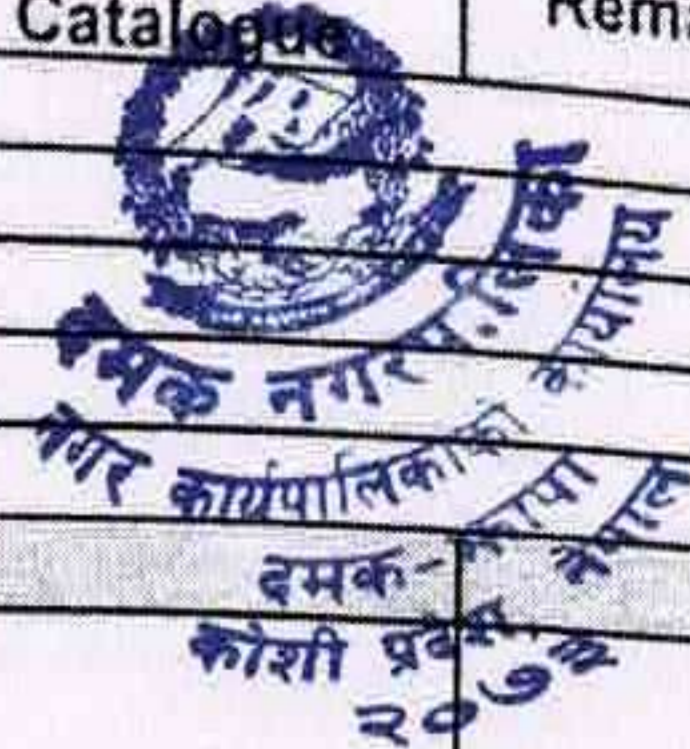 Catalogue
Rema
दमक नगरपालिका
नगर कार्यपालिकाको कार्यालय
दमक-झापा
कोशी प्रदेश, नेपाल
२०७३